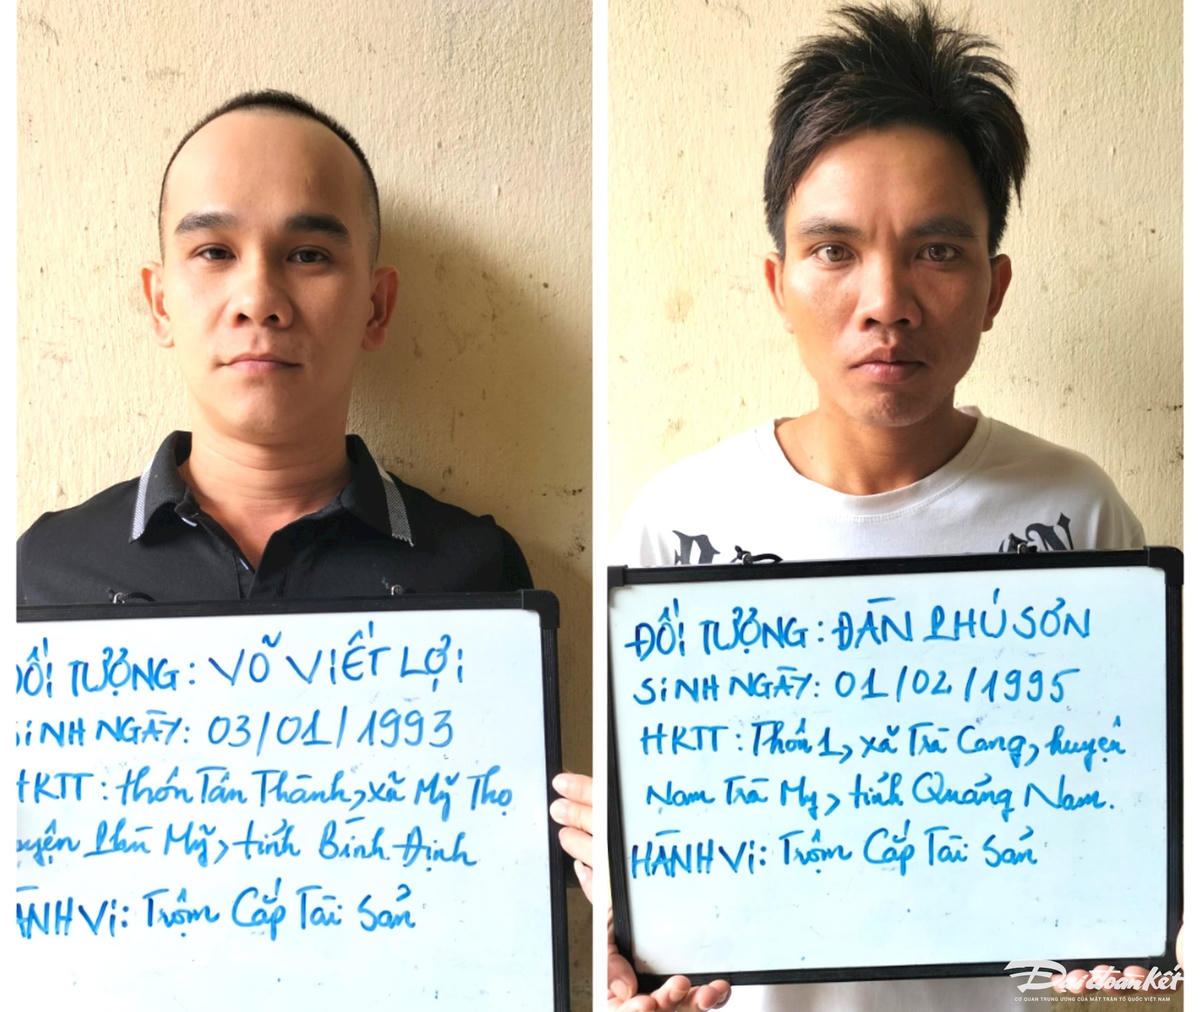 ĐỐI TƯỢNG: VÕ VIẾT LỢI
SINH NGÀY: 03/01/1993
HKTT: thôn Tân Thành, xã Mỹ Thọ
huyện Phù Mỹ, tỉnh Bình Định
HÀNH Vi: Trộm Cắp Tài Sản
ĐỐI TƯỢNG: ĐÀN PHÚ SƠN
SINH NGÀY: 01/02/1995
HKTT: Thôn 1, xã Trà Cang, huyện
Nam Trà My, tỉnh Quảng Nam.
HÀNH Vi: Trộm Cắp Tài Sản
Đại đoàn kết
CƠ QUAN TRUNG ƯƠNG CỦA MẶT TRẬN TỔ QUỐC VIỆT NAM